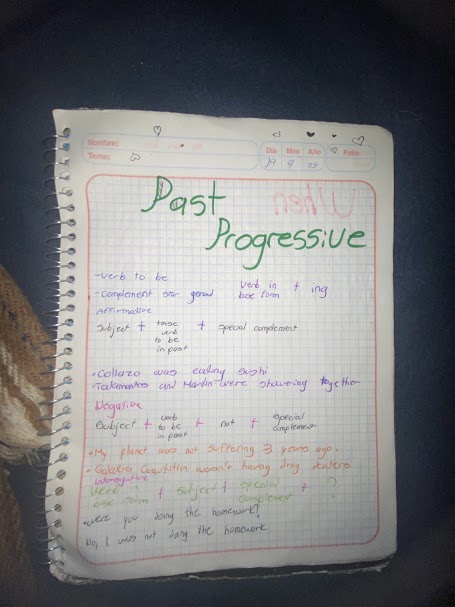 Nombre:
Tema:
Día Mes Año
Folio:
19 9
When
Past
Progressive
-verb to be
-Complement gerund verb in base form + ing
Affirmative
Subject + tense verb to be in past + special complement
•Collazo was eating sushi
•Talamantes and Martin were showering together
Negative
Subject + verb to be in past + not + special complement
•My planet was not suffering 3 years ago.
•Galaxia weren't having drug dealers
Interrogative
Verb base form + subject + special complement + ?
•Were you doing the homework?
No, I was not doing the homework